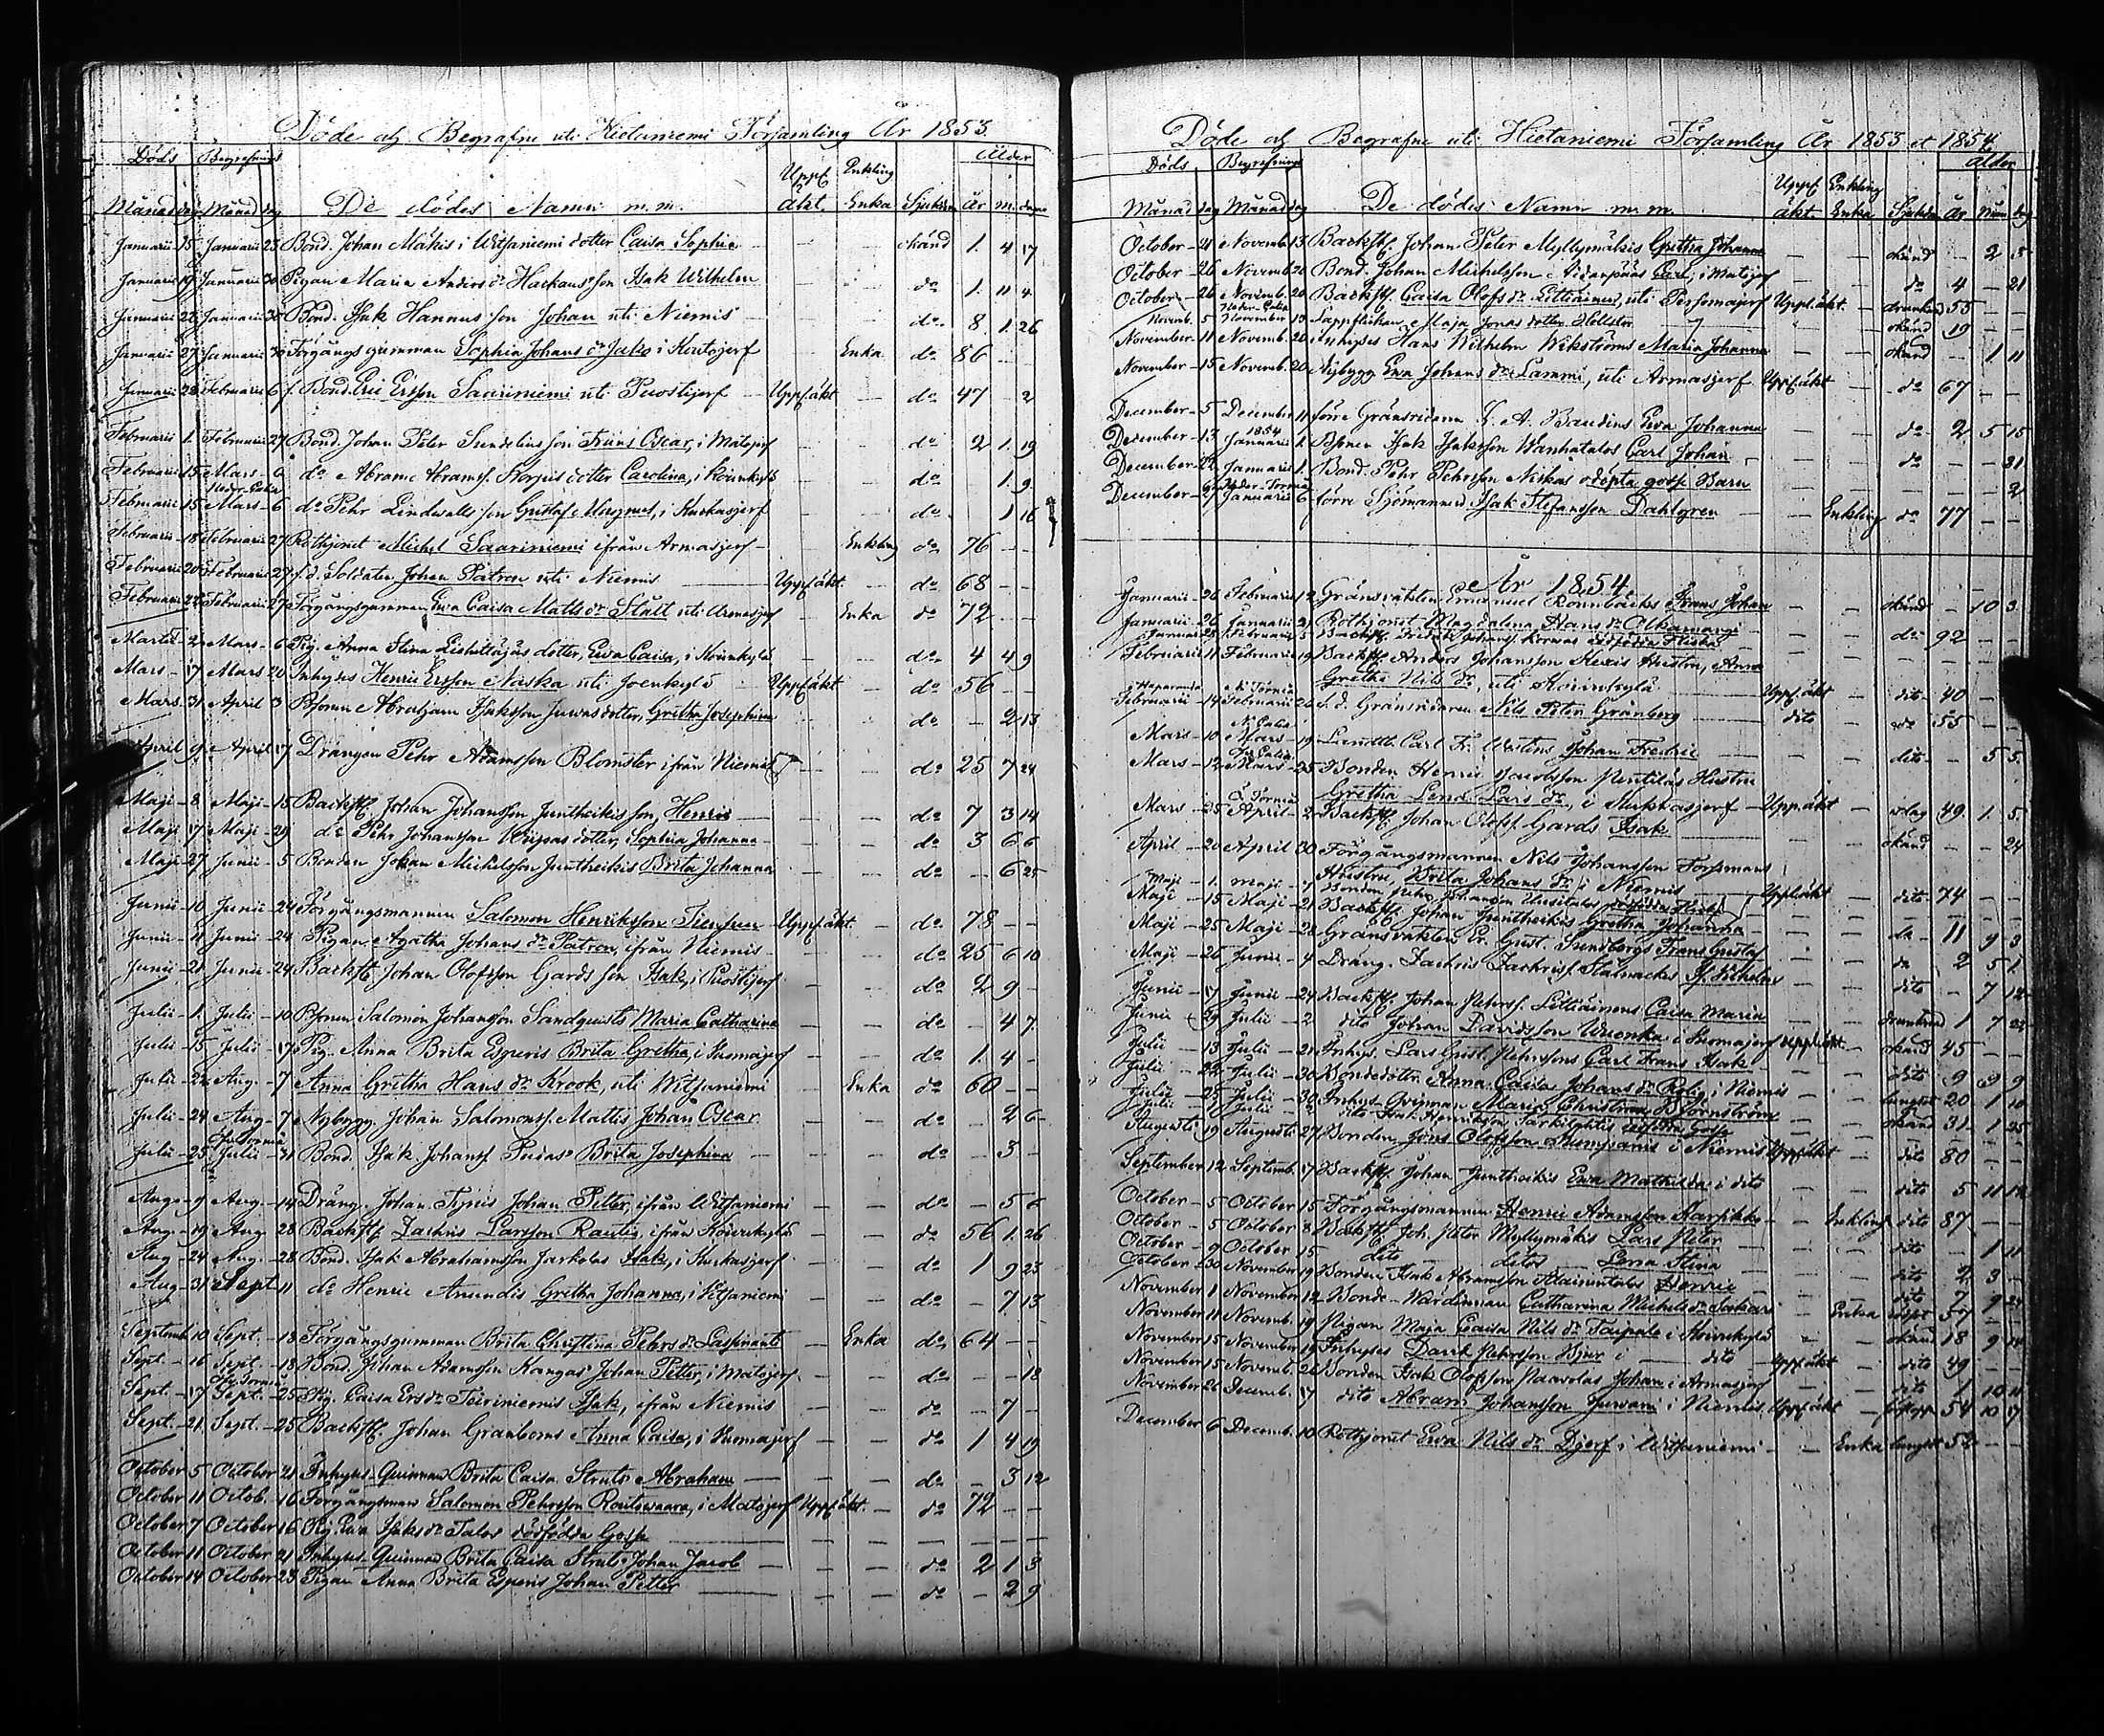 Döde och Begrafne uti Hietaniemi Församling År 1853.
Döds Begrafnings Uppf. Enkling Ålder
Månad dag Månad dag De dödes Namn m.m. äkt. Enka Sjukdom År m. dagar
Januarii 15 Januarii 23 Bond. Johan Mäkis i Witsaniemi dotter Caisa Sophia — — okänd 1. 4 17
Januarii 19 Januarii 30 Pigan Maria Anders dr son Isak Wilhelm — — do 1. 11 4
Januarii Januarii 30 Bond. Isak Hannus son Johan uti Niemis — — do 8 1. 26
Januarii 27 Januarii 30 Förgångsgumman Sophia Johans dr Jako i Koutojerf Enka do 86 — —
Januarii 28 Februarii 6 f. Bond. Eric Ersson Saariniemi uti Puostijerf — Uppf. äkt — do 47 — 2
Februarii 1. Februarii 27 Bond. Johan Peter Sundelins son Frans Oscar, i Matojerf — — do 2 1. 19
Februarii 15 Mars 6 do Abram Abramss. Korpis dotter Carolina, i Koivukylä — — do — 1. 9
Neder Calix
Februarii 15 Mars 6 do Pehr Lindwalls son Gustaf Magnus, i Kuckasjerf — — do — 1 16
Februarii 18 Februarii 27 Rothjonet Michel Saariniemi ifrån Armasjerf — Enkling do 76 — —
Februarii 20 Februarii 27 f.d. Soldaten Johan Patron uti Niemis Uppf. äkt. — do 68 — —
Februarii 22 Februarii 27 Förgångsgumman Ewa Caisa Matts dr Stålt uti Armasjerf Enka do 72 — —
Martii 2 Mars 6 Pig. Anna Stina dotter, Ewa Caisa, i Koivukylä — — do 4 4 9
Mars 17 Mars 20 Inhyses Henric Ersson Naska uti Joenkylä Uppf. äkt — do 56 — —
Mars 31 April 3 Abraham Isaksson Juwas dotter, Gretha Josephina — — do — 2 13
April 9 April 17 Drängen Pehr Adamsson Blomster ifrån Niemis — — do 25 7 24
Maji 8 Maji 15 Backstf. Johan Johansson Juntheikis son, Henric — — do 7 3 14
Maji 17 Maji 29 do Pehr Johansson dotter, Sophia Johanna — — do 3 6 6
Maji 27 Junii 5 Bonden Johan Michelsson Juntheikis Brita Johanna — — do — 6 25
Junii 10 Junii 24 Förgångsmannen Salomon Henriksson Uppf. äkt. — do 78 — —
Junii 11 Junii 24 Pigan Agatha Johans dr Patron, ifrån Niemis — — do 25 6 10
Junii 21 Junii 24 Backstf. Johan Olofsson Gards son Isak, i Puostijerf — — do 2 9 —
Julii 1. Julii 10 Salomon Johansson Sandquists Maria Catharina — — do — 4 7
Julii 15 Julii 17 Pig. Anna Brita Esperis Brita Gretha, i — — do 1 4 —
Julii 22 Aug. 7 Anna Gretha Hans dr Krook, uti Witsaniemi — Enka do 60 — —
Julii 24 Aug. 7 Nybygg. Johan Salomonss. Mattis Johan Oscar — — do — 2 6
Julii 25 Julii 31 Bond. Isak Johanss. Pudas Brita Josephina — — do — 3 —
Aug. 9 Aug. 14 Dräng. Johan Johan Petter, ifrån Witsaniemi — — do — 5 6
Aug. 19 Aug. 28 Backstf. Zachris Larsson Rautio, ifrån Koivukylä — — do 56 1. 26
Aug. 24 Aug. 28 Bond. Isak Abrahamsson Jarkolas Isak, i Kuckasjerf — — do 1 9 23
Aug. 31 Sept. 11 do Henric Anundis Gretha Johanna, i Witsaniemi — — do — 7 13
Septemb. 10 Sept. 18 Förgångsgumman Brita Christina Pehrs dr Enka do 64 — —
Sept. 16 Sept. 18 Bond. Johan Adamsson Kangas Johan Petter, i Matojerf — — do — — 18
Öfv. Torneå
Sept. 17 Sept. 25 Pig. Caisa Ers dr Isak, ifrån Niemis — — do — 7 —
Sept. 21 Sept. 25 Backstf. Johan Granboms Anna Caisa, i — — do 1 4 19
October 5 October 21 Inhyses Quinnan Brita Caisa Struts Abraham — — do — 3 12
October 11 Octob. 16 Förgångsman Salomon Pehrsson Rautiowaara, i Matojerf Uppf. äkt. — do 72 — —
October 7 October 16 Pig. Ewa Isaks dr Talos dödfödda Gosse — — — — — —
October 11 October 21 Inhyses Quinnan Brita Caisa Struts Johan Jacob — — do 2 1 3
October 14 October 23 Pigan Anna Brita Esperis Johan Petter — — do — 2 9
Döde och Begrafne uti Hietaniemi Församling År 1853 et 1854
Döds Begrafnings Uppf. Enkling ålder
Månad dag Månad dag De dödes Namn m.m. äkt. Enka Sjukdom År Mån. dag
October 21 Novemb. 13 Backstf. Johan Peter Myllymäkis Gretha Johanna — — okänd — 2 5
October 26 Novemb. 20 Bond. Johan Michelsson Carl, i Matojerf — — do 4 — 21
October 26 Novemb. 20 Backstf. Caisa Olofs dr uti Uppf. äkt. — drunknad 55 — —
Neder Calix
Novemb. 5 November 13 Lappflickan Maja Jonas dotter Hellsten — okänd 19 — —
November 11 Novemb. 20 Inhyses Hans Wilhelm Wikströms Maria Johanna — — okänd — 1 11
November 15 Novemb. 20 Nybygg. Ewa Johans dr Lammi, uti Armasjerf Uppf. äkt — do 67 — —
December 5 December 11 förre Gränsridaren Ewa Johanna — — do 2 5 15
1854
December 13 Januarii 1. Isak Isaksson Wanhatalos Carl Johan — — do — — 21
December 22 Januarii 1. Bond. Pehr Pehrsson Niskas odöpta gosse Barn — — — 2
Neder Torneå
December 27 Januarii 6 förre Sjömannen Isak Stefansson Dahlgren — Enkling do 77 — —
År 1854.
Januarii 26 Februarii 12 Gränsvakten Emanuel Rönnbäcks Frans Johan — — okänd — 10 3
Januarii 26 Januarii 29 Rothjonet Magdalena Hans dr Alkamangi — — do 92 — —
Januarii 28 Februarii 5 Backstf. Fredric Johanss. Korwas dödfödda Flicka — — — — —
Februarii 11 Februarii 19 Backstf. Anders Johansson Hustru, Anna
Gretha Nils dr, uti Koivukylä Uppf. äkt — dito 40 — —
Haparanda N. Torneå
Februarii 14 Februarii 26 f.d. Gränsridaren Nils Peter Grönberg dito — do 55 — —
N. Calix
Mars 10 Mars 19 Landtb. Carl Fr. Johan Fredric — — dito — 5 5
Mars 12 Mars 25 Bonden Henric Jacobsson Penttiläs Hustru
Gretha Lena Lars dr, i Kuckasjerf Uppf. äkt — slag 49. 1. 5.
Ö. Torneå
Mars 25 April 2 Backstf. Johan Olofss. Gards Isak — okänd — — 24
April 20 April 30 Förgångsmannen Nils Johansson Forsmans
Hustru, Brita Johans dr, i Niemis Uppf. äkt — dito 74 — —
Maji 1. Maji 7 Bonden Pehr Johansson Uusitalos dödfödda Flicka — — — — —
Maji 15 Maji 21 Backstf. Johan Juntheikis Gretha Johanna — — do 11 9 3
Maji 25 Maji 28 Gränsvakten Er. Gust. Sundbergs Frans Gustaf — — do 2 5 1.
Maji 26 Junii 4 Dräng. Zachris Zachriss. Stålnackes — — dito — 7 12
Junii 17 Junii 24 Backstf. Johan Pehrss. Caisa Maria — — drunknad 1 7 22
Junii 29 Julii 2 dito Johan Davidsson i Uppf. äkt. — okänd 45 — —
Julii 13 Julii 21 Inhys. Lars Gust. Pehrssons Carl Frans Isak — — dito 9 9
Julii 22 Julii 30 Bondedottr. Anna Caisa Johans dr Rolig, i Niemis — — lungsot 20 1 10
Julii 25 Julii 30 Inhys. Quinnan Maria Christina Björnström — — okänd 31. 1 25
Augusti 19 Augusti 27 Bonden Jöns Olofsson Kumpans i Niemis Uppf. äkt — dito 80 — —
September 12 Septemb. 17 Backstf. Johan Juntheikis Ewa Mathilda, i dito — — dito 5 11
October 5 October 15 Förgångsmannen Henric Adamsson Karpikko — Enkling dito 87 — —
October 5 October 8 Backstf. Joh. Peter Myllymäkis Lars Peter — — dito — 1 11
October 9 October 15 dito ditos Lena Stina — — dito 2 3 —
October 30 November 19 Bonden Isak Abramsson Henric — — dito 7 9 24
November 1 November 12 Bonde Wärdinnan Catharina Michels dr Enka 57 —
November 11 Novemb. 19 Pigan Maja Caisa Nils dr Taipale i Koivukylä — okänd 18 9
November 15 November 19 Inhyses David Pehrsson Björ i dito Uppf. äkt — dito 49 — —
November 15 Novemb. 26 Bonden Isak Olofsson Paavolas Johan i Armasjerf — — dito 1 10 11
November 26 Decemb. 17 dito Abram Johansson Juwani i Niemis Uppf. äkt — 54 10 17
December 6 Decemb. 10 Rothjonet Ewa Nils dr Djerf i Witsaniemi — Enka lungsot 52 —